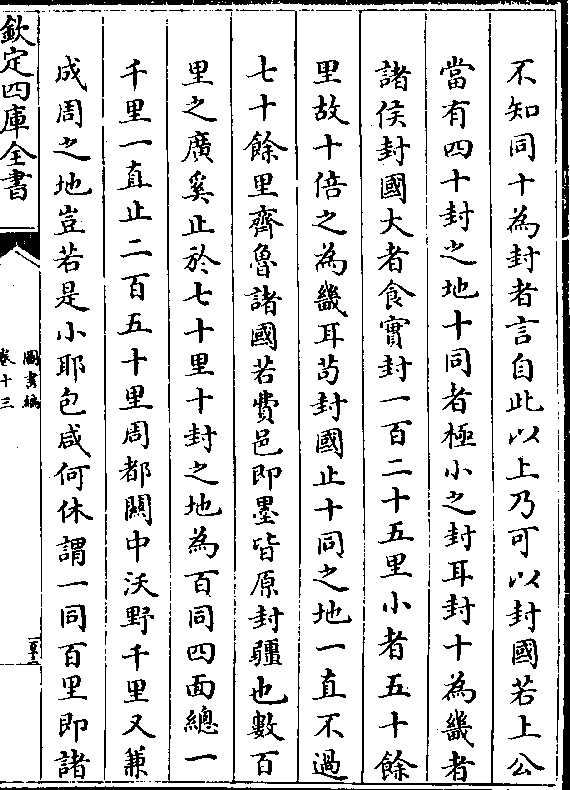 不知同十為封者言自此以上乃可以封國若上公
當有四十封之地十同者極小之封耳封十為畿者
諸侯封國大者食實封一百二十五里小者五十餘
里故十倍之為畿耳苟封國止十同之地一直不過
七十餘里齊魯諸國若費邑即墨皆原封疆也數百
里之廣奚止於七十里十封之地為百同四面總一
千里一直止二百五十里周都關中沃野千里又兼
成周之地豈若是小耶包咸何休謂一同百里即諸
欽定四庫全書
圖書編
卷十三